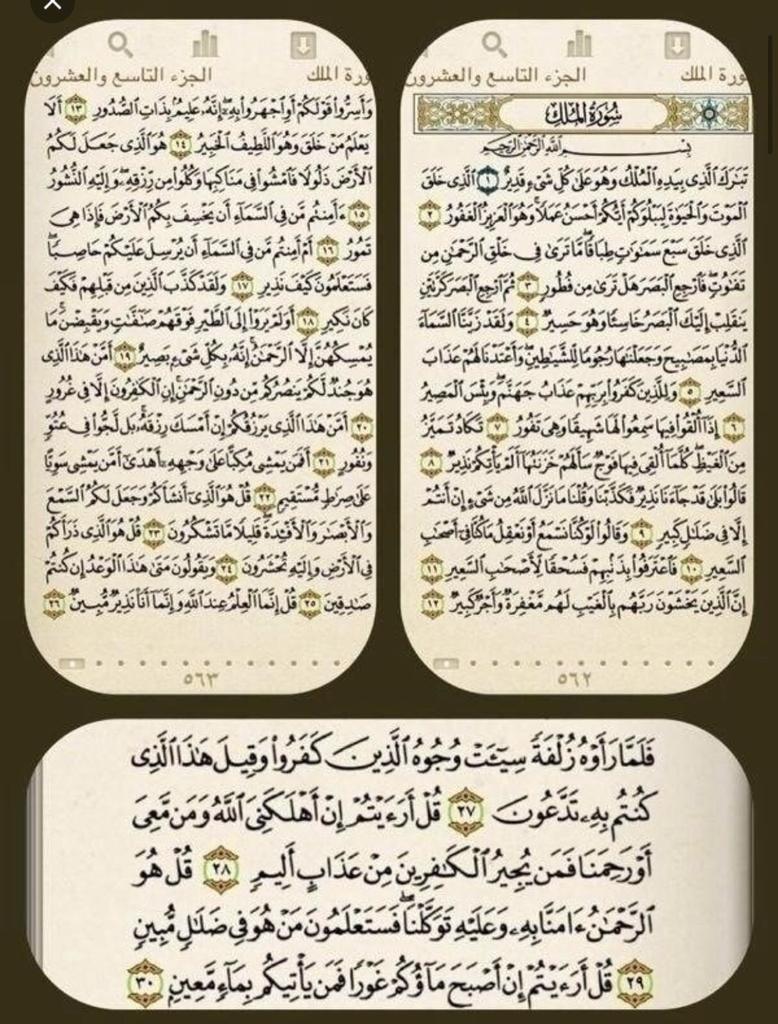 الجزء التاسع والعشرون
ورة الملك
سُورَةُ المُلْكِ
بِسْمِ اللَّهِ الرَّحْمَٰنِ الرَّحِيمِ
تَبَٰرَكَ ٱلَّذِى بِيَدِهِ ٱلْمُلْكُ وَهُوَ عَلَىٰ كُلِّ شَىْءٍ قَدِيرٌ ١ ٱلَّذِى خَلَقَ
ٱلْمَوْتَ وَٱلْحَيَوٰةَ لِيَبْلُوَكُمْ أَيُّكُمْ أَحْسَنُ عَمَلًا ۚ وَهُوَ ٱلْعَزِيزُ ٱلْغَفُورُ ٢
ٱلَّذِى خَلَقَ سَبْعَ سَمَٰوَٰتٍ طِبَاقًا ۖ مَّا تَرَىٰ فِى خَلْقِ ٱلرَّحْمَٰنِ مِن
تَفَٰوُتٍ ۖ فَٱرْجِعِ ٱلْبَصَرَ هَلْ تَرَىٰ مِن فُطُورٍ ٣ ثُمَّ ٱرْجِعِ ٱلْبَصَرَ كَرَّتَيْنِ
يَنقَلِبْ إِلَيْكَ ٱلْبَصَرُ خَاسِئًا وَهُوَ حَسِيرٌ ٤ وَلَقَدْ زَيَّنَّا ٱلسَّمَآءَ
ٱلدُّنْيَا بِمَصَٰبِيحَ وَجَعَلْنَٰهَا رُجُومًا لِّلشَّيَٰطِينِ ۖ وَأَعْتَدْنَا لَهُمْ عَذَابَ
ٱلسَّعِيرِ ٥ وَلِلَّذِينَ كَفَرُوا۟ بِرَبِّهِمْ عَذَابُ جَهَنَّمَ ۖ وَبِئْسَ ٱلْمَصِيرُ
٦ إِذَآ أُلْقُوا۟ فِيهَا سَمِعُوا۟ لَهَا شَهِيقًا وَهِىَ تَفُورُ ٧ تَكَادُ تَمَيَّزُ
مِنَ ٱلْغَيْظِ ۖ كُلَّمَآ أُلْقِىَ فِيهَا فَوْجٌ سَأَلَهُمْ خَزَنَتُهَآ أَلَمْ يَأْتِكُمْ نَذِيرٌ ٨
قَالُوا۟ بَلَىٰ قَدْ جَآءَنَا نَذِيرٌ فَكَذَّبْنَا وَقُلْنَا مَا نَزَّلَ ٱللَّهُ مِن شَىْءٍ إِنْ أَنتُمْ
إِلَّا فِى ضَلَٰلٍ كَبِيرٍ ٩ وَقَالُوا۟ لَوْ كُنَّا نَسْمَعُ أَوْ نَعْقِلُ مَا كُنَّا فِىٓ أَصْحَٰبِ
ٱلسَّعِيرِ ١٠ فَٱعْتَرَفُوا۟ بِذَنۢبِهِمْ فَسُحْقًا لِّأَصْحَٰبِ ٱلسَّعِيرِ ١١
إِنَّ ٱلَّذِينَ يَخْشَوْنَ رَبَّهُم بِٱلْغَيْبِ لَهُم مَّغْفِرَةٌ وَأَجْرٌ كَبِيرٌ ١٢
٥٦٢
الجزء التاسع والعشرون
ورة الملك
وَأَسِرُّوا۟ قَوْلَكُمْ أَوِ ٱجْهَرُوا۟ بِهِۦٓ ۖ إِنَّهُۥ عَلِيمٌۢ بِذَاتِ ٱلصُّدُورِ ١٣ أَلَا
يَعْلَمُ مَنْ خَلَقَ وَهُوَ ٱللَّطِيفُ ٱلْخَبِيرُ ١٤ هُوَ ٱلَّذِى جَعَلَ لَكُمُ
ٱلْأَرْضَ ذَلُولًا فَٱمْشُوا۟ فِى مَنَاكِبِهَا وَكُلُوا۟ مِن رِّزْقِهِۦ ۖ وَإِلَيْهِ ٱلنُّشُورُ
١٥ ءَأَمِنتُم مَّن فِى ٱلسَّمَآءِ أَن يَخْسِفَ بِكُمُ ٱلْأَرْضَ فَإِذَا هِىَ
تَمُورُ ١٦ أَمْ أَمِنتُم مَّن فِى ٱلسَّمَآءِ أَن يُرْسِلَ عَلَيْكُمْ حَاصِبًا ۖ
فَسَتَعْلَمُونَ كَيْفَ نَذِيرِ ١٧ وَلَقَدْ كَذَّبَ ٱلَّذِينَ مِن قَبْلِهِمْ فَكَيْفَ
كَانَ نَكِيرِ ١٨ أَوَلَمْ يَرَوْا۟ إِلَى ٱلطَّيْرِ فَوْقَهُمْ صَٰٓفَّٰتٍ وَيَقْبِضْنَ ۚ مَا
يُمْسِكُهُنَّ إِلَّا ٱلرَّحْمَٰنُ ۚ إِنَّهُۥ بِكُلِّ شَىْءٍۭ بَصِيرٌ ١٩ أَمَّنْ هَٰذَا ٱلَّذِى
هُوَ جُندٌ لَّكُمْ يَنصُرُكُم مِّن دُونِ ٱلرَّحْمَٰنِ ۚ إِنِ ٱلْكَٰفِرُونَ إِلَّا فِى غُرُورٍ
٢٠ أَمَّنْ هَٰذَا ٱلَّذِى يَرْزُقُكُمْ إِنْ أَمْسَكَ رِزْقَهُۥ ۚ بَل لَّجُّوا۟ فِى عُتُوٍّ
وَنُفُورٍ ٢١ أَفَمَن يَمْشِى مُكِبًّا عَلَىٰ وَجْهِهِۦٓ أَهْدَىٰٓ أَمَّن يَمْشِى سَوِيًّا
عَلَىٰ صِرَٰطٍ مُّسْتَقِيمٍ ٢٢ قُلْ هُوَ ٱلَّذِىٓ أَنشَأَكُمْ وَجَعَلَ لَكُمُ ٱلسَّمْعَ
وَٱلْأَبْصَٰرَ وَٱلْأَفْـِٔدَةَ ۖ قَلِيلًا مَّا تَشْكُرُونَ ٢٣ قُلْ هُوَ ٱلَّذِى ذَرَأَكُمْ
فِى ٱلْأَرْضِ وَإِلَيْهِ تُحْشَرُونَ ٢٤ وَيَقُولُونَ مَتَىٰ هَٰذَا ٱلْوَعْدُ إِن كُنتُمْ
صَٰدِقِينَ ٢٥ قُلْ إِنَّمَا ٱلْعِلْمُ عِندَ ٱللَّهِ وَإِنَّمَآ أَنَا۠ نَذِيرٌ مُّبِينٌ ٢٦
٥٦٣
فَلَمَّا رَأَوْهُ زُلْفَةً سِيٓـَٔتْ وُجُوهُ ٱلَّذِينَ كَفَرُوا۟ وَقِيلَ هَٰذَا ٱلَّذِى
كُنتُم بِهِۦ تَدَّعُونَ ٢٧ قُلْ أَرَءَيْتُمْ إِنْ أَهْلَكَنِىَ ٱللَّهُ وَمَن مَّعِىَ
أَوْ رَحِمَنَا فَمَن يُجِيرُ ٱلْكَٰفِرِينَ مِنْ عَذَابٍ أَلِيمٍ ٢٨ قُلْ هُوَ
ٱلرَّحْمَٰنُ ءَامَنَّا بِهِۦ وَعَلَيْهِ تَوَكَّلْنَا ۖ فَسَتَعْلَمُونَ مَنْ هُوَ فِى ضَلَٰلٍ مُّبِينٍ
٢٩ قُلْ أَرَءَيْتُمْ إِنْ أَصْبَحَ مَآؤُكُمْ غَوْرًا فَمَن يَأْتِيكُم بِمَآءٍ مَّعِينٍۭ ٣٠